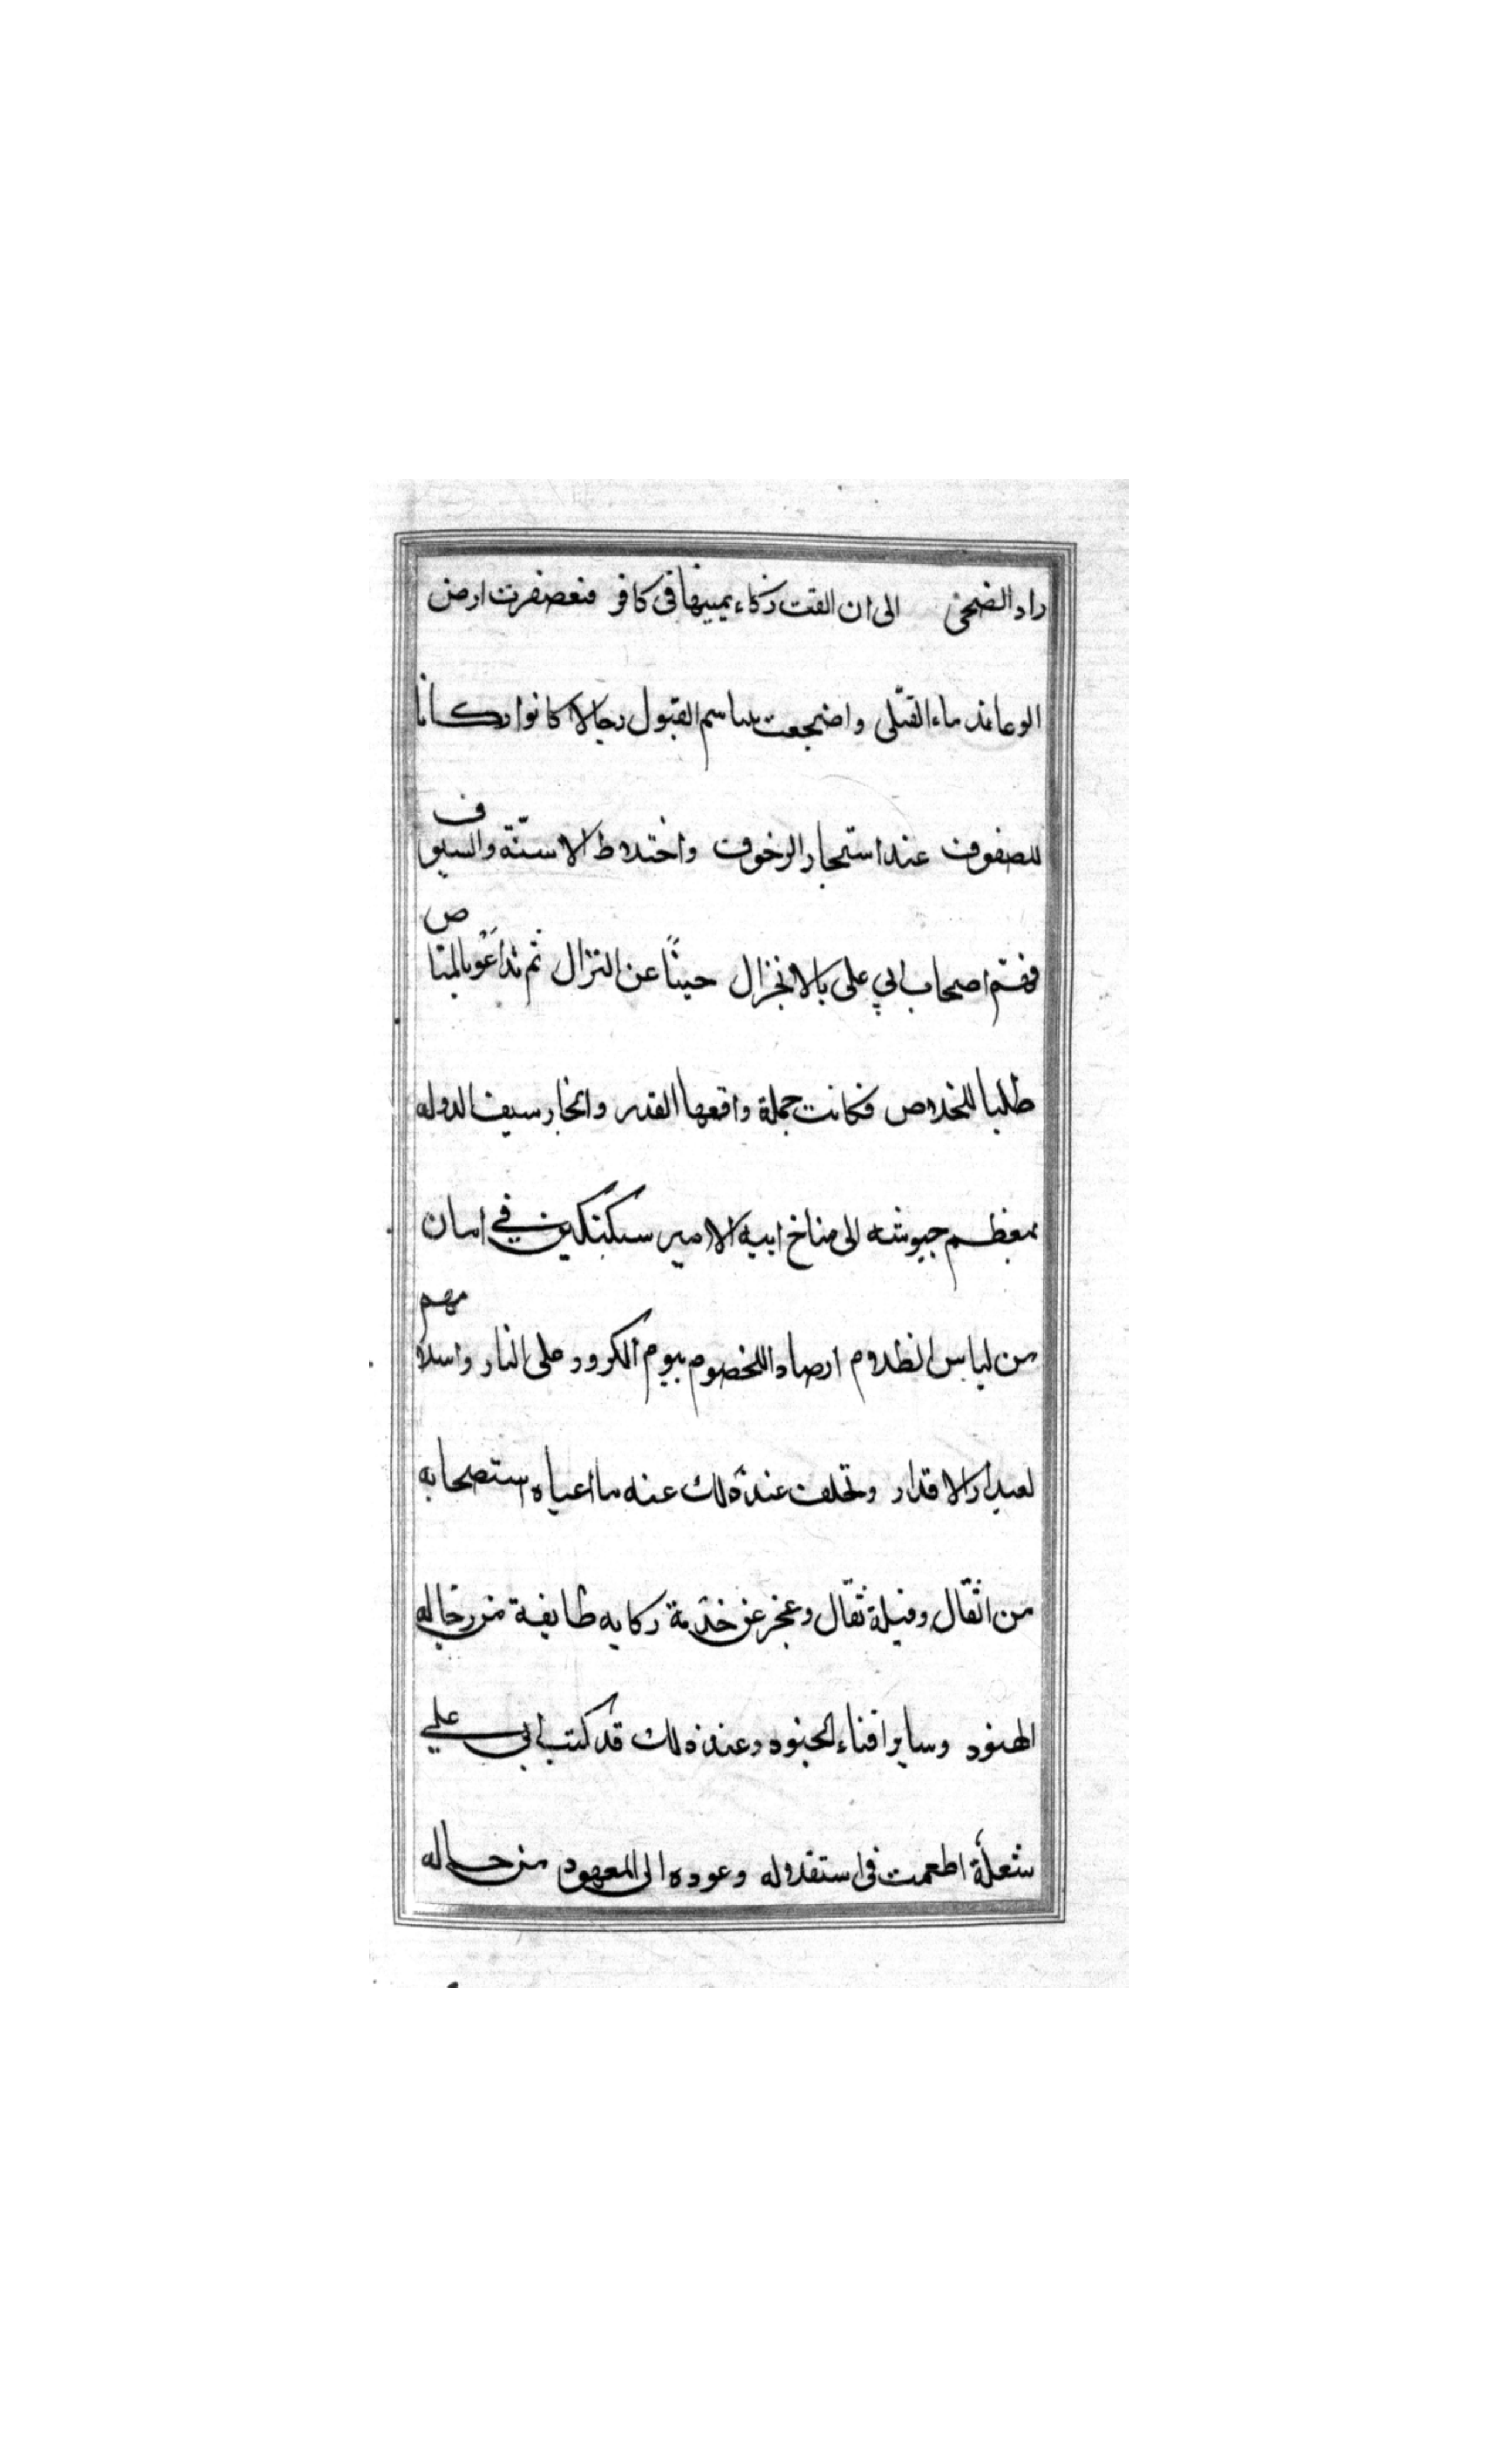 راد الضحى الى ان القت ذكاء يمينها فى كافر فتعصفرت ارض
الوغا بدماء القتلى واضجعت مباسم القبول رجالا كانوا اركانا
للصفوف عند استجار الزحوف واختلاط الاسنة والسيوف
فهمّ اصحاب ابي على بالانخزال حينًا عن النزال ثم تداعَوْا بالمناص
طلبا للخلاص فكانت حملة واقعها القدر وانحاز سيف الدوله
بمعظم جيوشه الى مناخ ابيه الامير سبكتكين في امان
من لباس الظلام ارصادا للخصوم بيوم الكرور على الثار واسلامهم
لعبدار الاقدار وتخلف عند ذلك عنه ما اعياه استصحابه
من اثقال وفيلة ثقّال وعجز عن خدمة ركابه طايفة من رجاله
الهنود وساير افناء الجنود وعند ذلك قد كتب ابي علي
شعلة اطعمت فى استقلاله وعوده الى المعهود من حاله